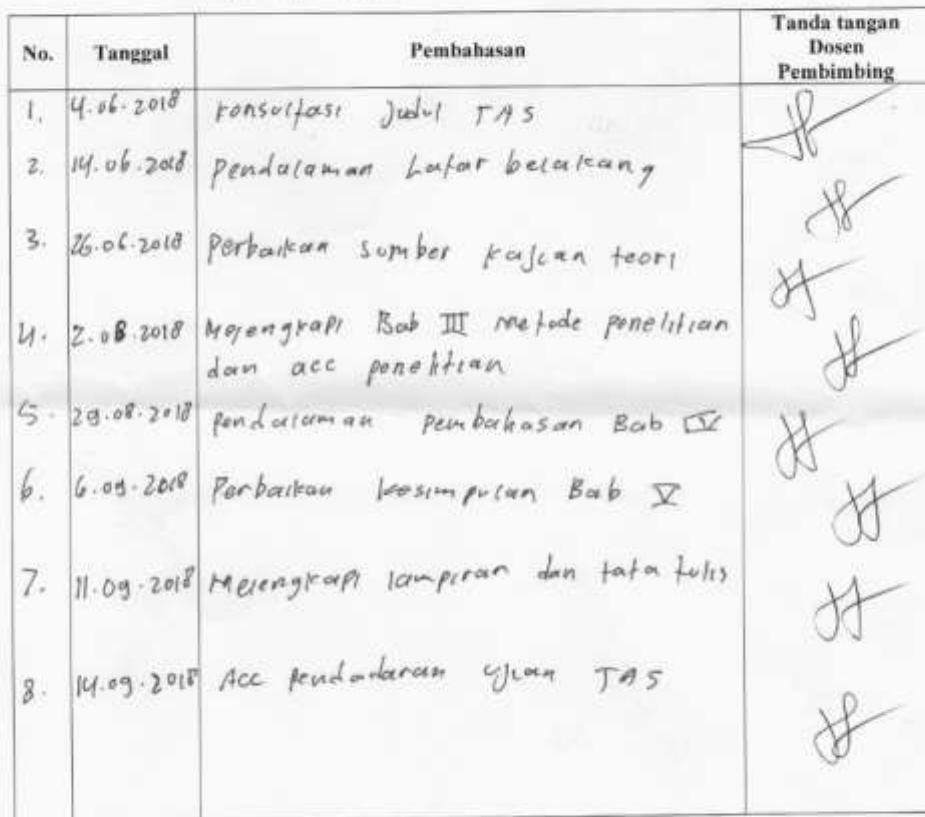 No. Tanggal Pembahasan Tanda tangan Dosen Pembimbing
1. 4.06.2018 Konsultasi Judul TAS
2. 14.06.2018 Pendalaman Latar belakang
3. 26.06.2018 Perbaikan sumber kajian teori
4. 2.08.2018 Melengkapi Bab III metode penelitian
dan acc penelitian
5. 29.08.2018 Pendalaman pembahasan Bab IV
6. 6.09.2018 Perbaikan kesimpulan Bab V
7. 11.09.2018 Melengkapi lampiran dan tata tulis
8. 14.09.2018 Acc Pendadaran Ujian TAS